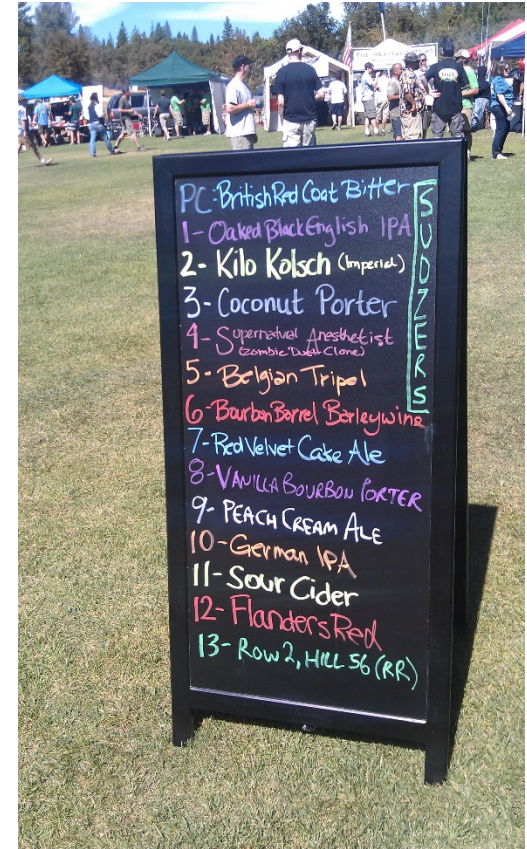 PC-British Red Coat Bitter
1- Oaked Black English IPA
2- Kilo Kolsch (Imperial)
3- Coconut Porter
4- Supernatural Anesthetist
(Zombie Dust Clone)
5- Belgian Tripel
6- Bourbon Barrel Barleywine
7- Red Velvet Cake Ale
8- VANILLA BOURBON PORTER
9- PEACH CREAM ALE
10- German IPA
11- Sour Cider
12- Flanders Red
13- ROW 2, HILL 56 (RR)
SUDZERS